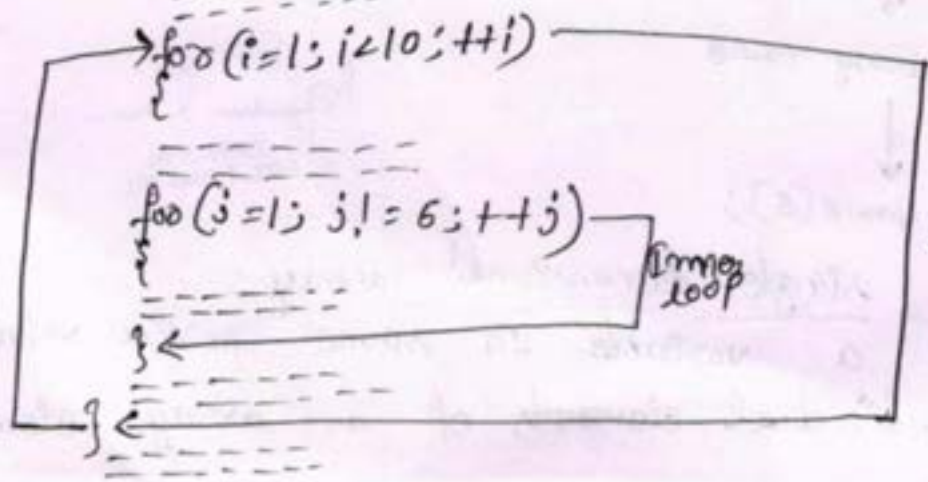 for(i=1; i<10; ++i)
{
for(j=1; j!=6; ++j)
{
Inner
loop
}
}